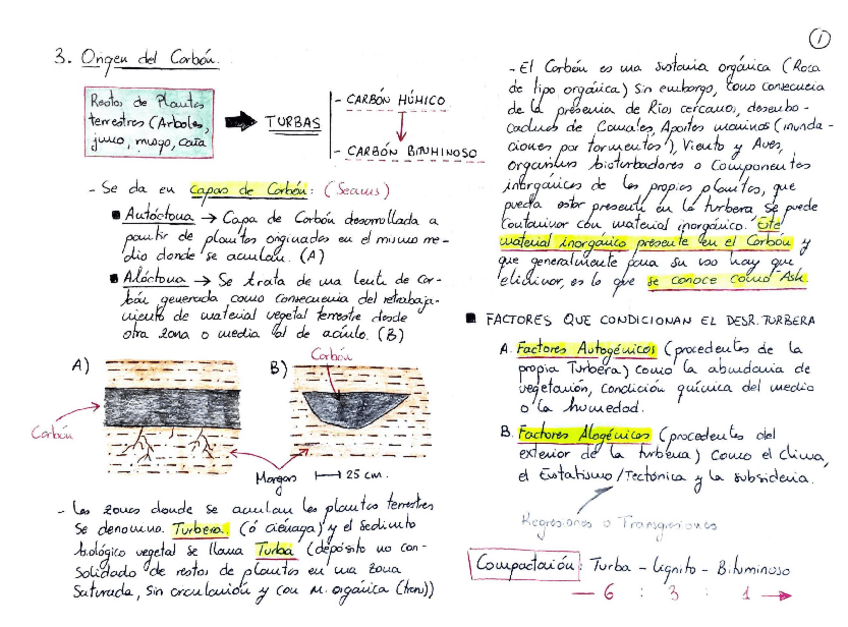 1
3. Origen del Carbón.
Restos de Plantas
terrestres (Arboles,
junco, musgo, caña
TURBAS
- CARBÓN HÚMICO
- CARBÓN BITUMINOSO
- Se da en Capas de Carbón: (Seams)
Autóctona → Capa de Carbón desarrollada a
partir de plantas originadas en el mismo me-
dio donde se acumulan. (A)
Alóctona → Se trata de una lente de Car-
bón generada como consecuencia del retrabaja-
miento de material vegetal terrestre desde
otra zona o media al de acúmulo. (B)
A)
B)
Carbón
Carbón
Margas
25 cm.
- Las zonas donde se acumulan las plantas terrestres
se denomina Turbera. (ó ciénaga) y el sedimento
biológico vegetal se llama Turba (depósito no con-
solidado de restos de plantas en una zona
saturada, sin circulación y con M. orgánica (trans))
- El Carbón es una sustancia orgánica (Roca
de tipo orgánica) Sin embargo, como consecuencia
de la presencia de Rios cercanos, desembo-
caduras de Canales, Aportes marinos (inunda-
ciones por tormentas), Viento y Aves,
organismos bioturbadores o Componentes
inorgánicos de las propias plantas, que
pueda estar presente en la turbera se puede
contaminar con material inorgánico. Este
material inorgánico presente en el Carbón y
que generalmente para su uso hay que
eliminar, es lo que se conoce como Ash.
FACTORES QUE CONDICIONAN EL DESR. TURBERA
A. Factores Autogénicos (procedentes de la
propia Turbera) como la abundancia de
vegetación, condición química del medio
o la humedad.
B. Factores Alogénicos (procedentes del
exterior de la turbera) como el clima,
el Eustatismo/Tectónica y la subsidencia.
Regresiones o Transgresiones
Compactación: Turba - Lignito - Bituminoso
6 : 3 : 1